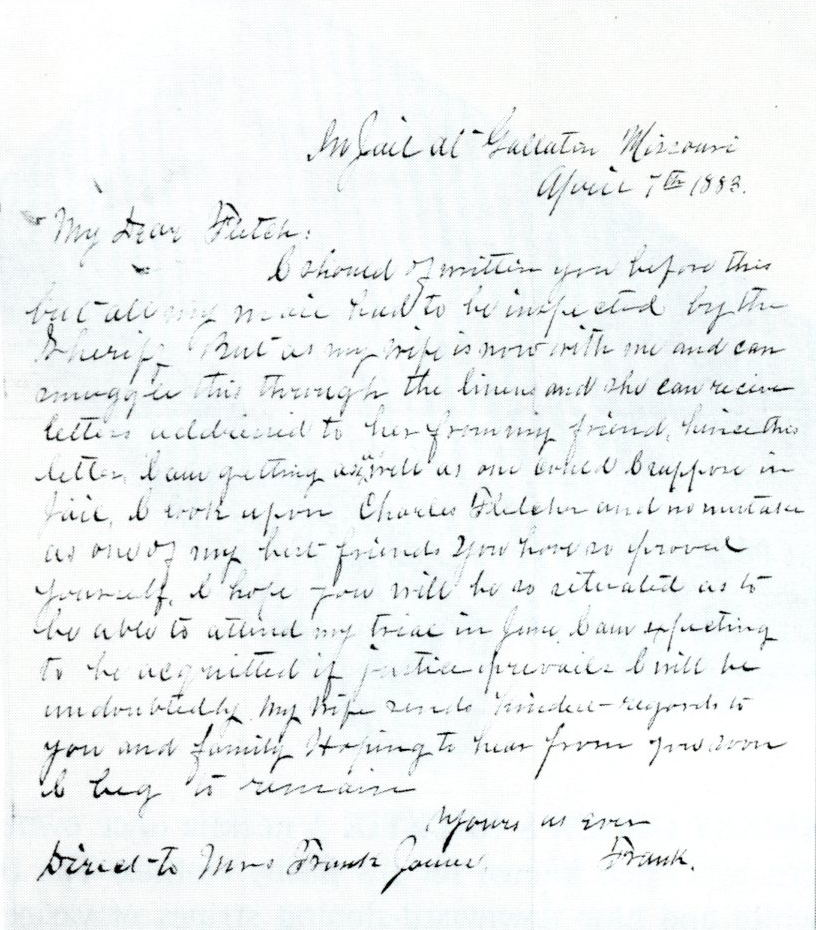 In Jail at Gallatin Missouri
April 7th 1883.
My Dear Fletch:
I should of written you before this
but all my mail had to be inspected by the
Sheriff. But as my wife is now with me and can
smuggle this through the linens and she can receive
letters addressed to her from my friend, hence this
letter. I am getting as well as one could I suppose in
Jail, I look upon Charles Fletcher and no mistake
as one of my best friends you have so proved
yourself. I hope you will be so situated as to
be able to attend my trial in June, I am expecting
to be acquitted if justice prevails I will be
undoubtedly. My Wife sends kindest regards to
you and family Hoping to hear from you soon
I beg to remain
Yours as ever
Direct to Mrs Frank James. Frank.